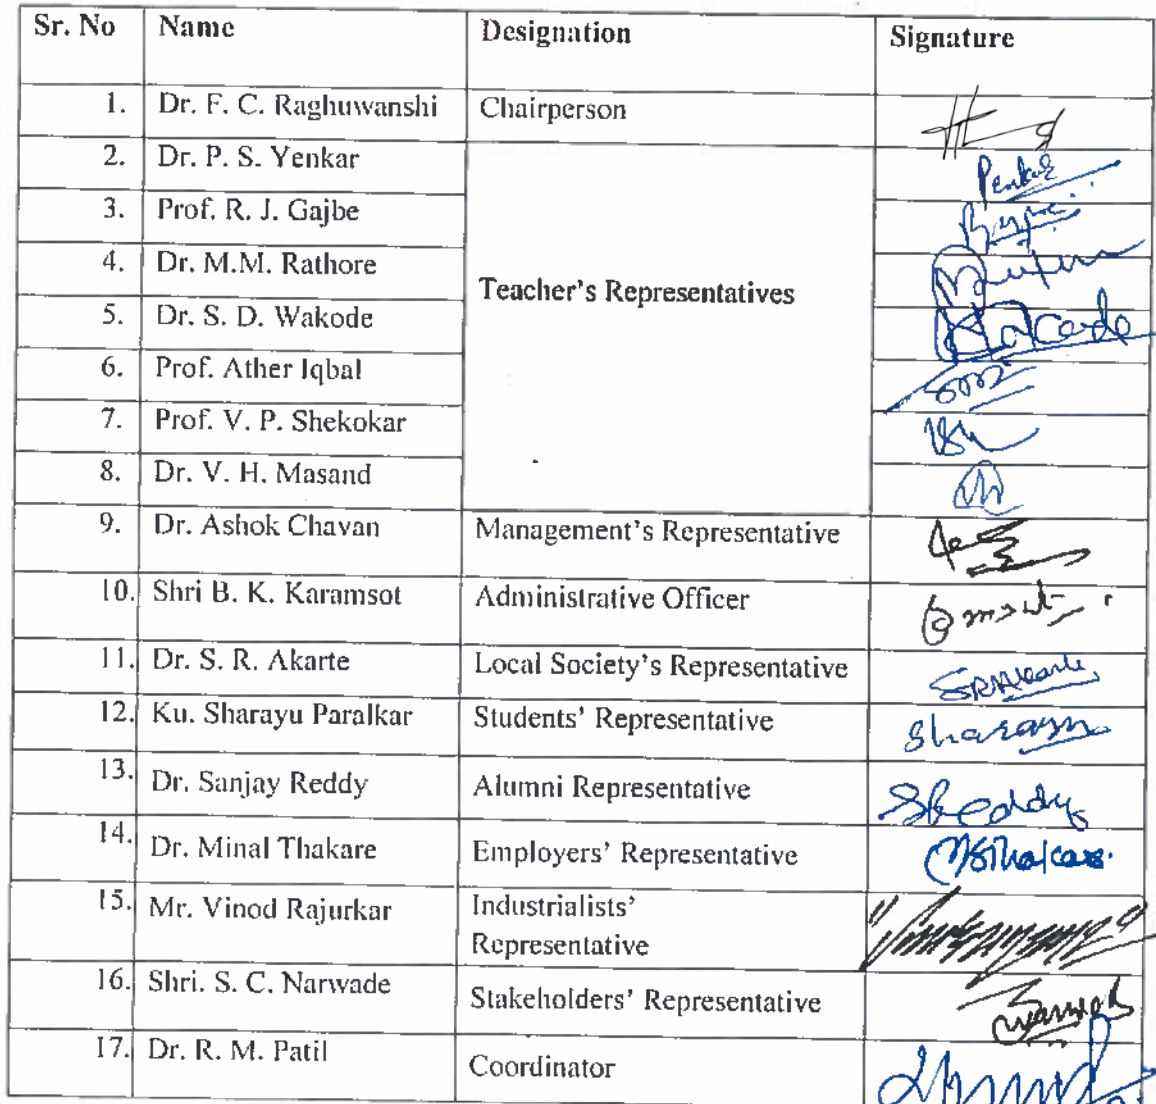 Sr. No Name Designation Signature
1. Dr. F. C. Raghuwanshi Chairperson
2. Dr. P. S. Yenkar
3. Prof. R. J. Gajbe
4. Dr. M.M. Rathore
Teacher's Representatives
5. Dr. S. D. Wakode
6. Prof. Ather Iqbal
7. Prof. V. P. Shekokar
8. Dr. V. H. Masand
9. Dr. Ashok Chavan Management's Representative
10. Shri B. K. Karamsot Administrative Officer
11. Dr. S. R. Akarte Local Society's Representative SRAkarte
12. Ku. Sharayu Paralkar Students' Representative Sharayu
13. Dr. Sanjay Reddy Alumni Representative SReddy
14. Dr. Minal Thakare Employers' Representative
15. Mr. Vinod Rajurkar Industrialists'
Representative
16. Shri. S. C. Narwade Stakeholders' Representative
17. Dr. R. M. Patil Coordinator